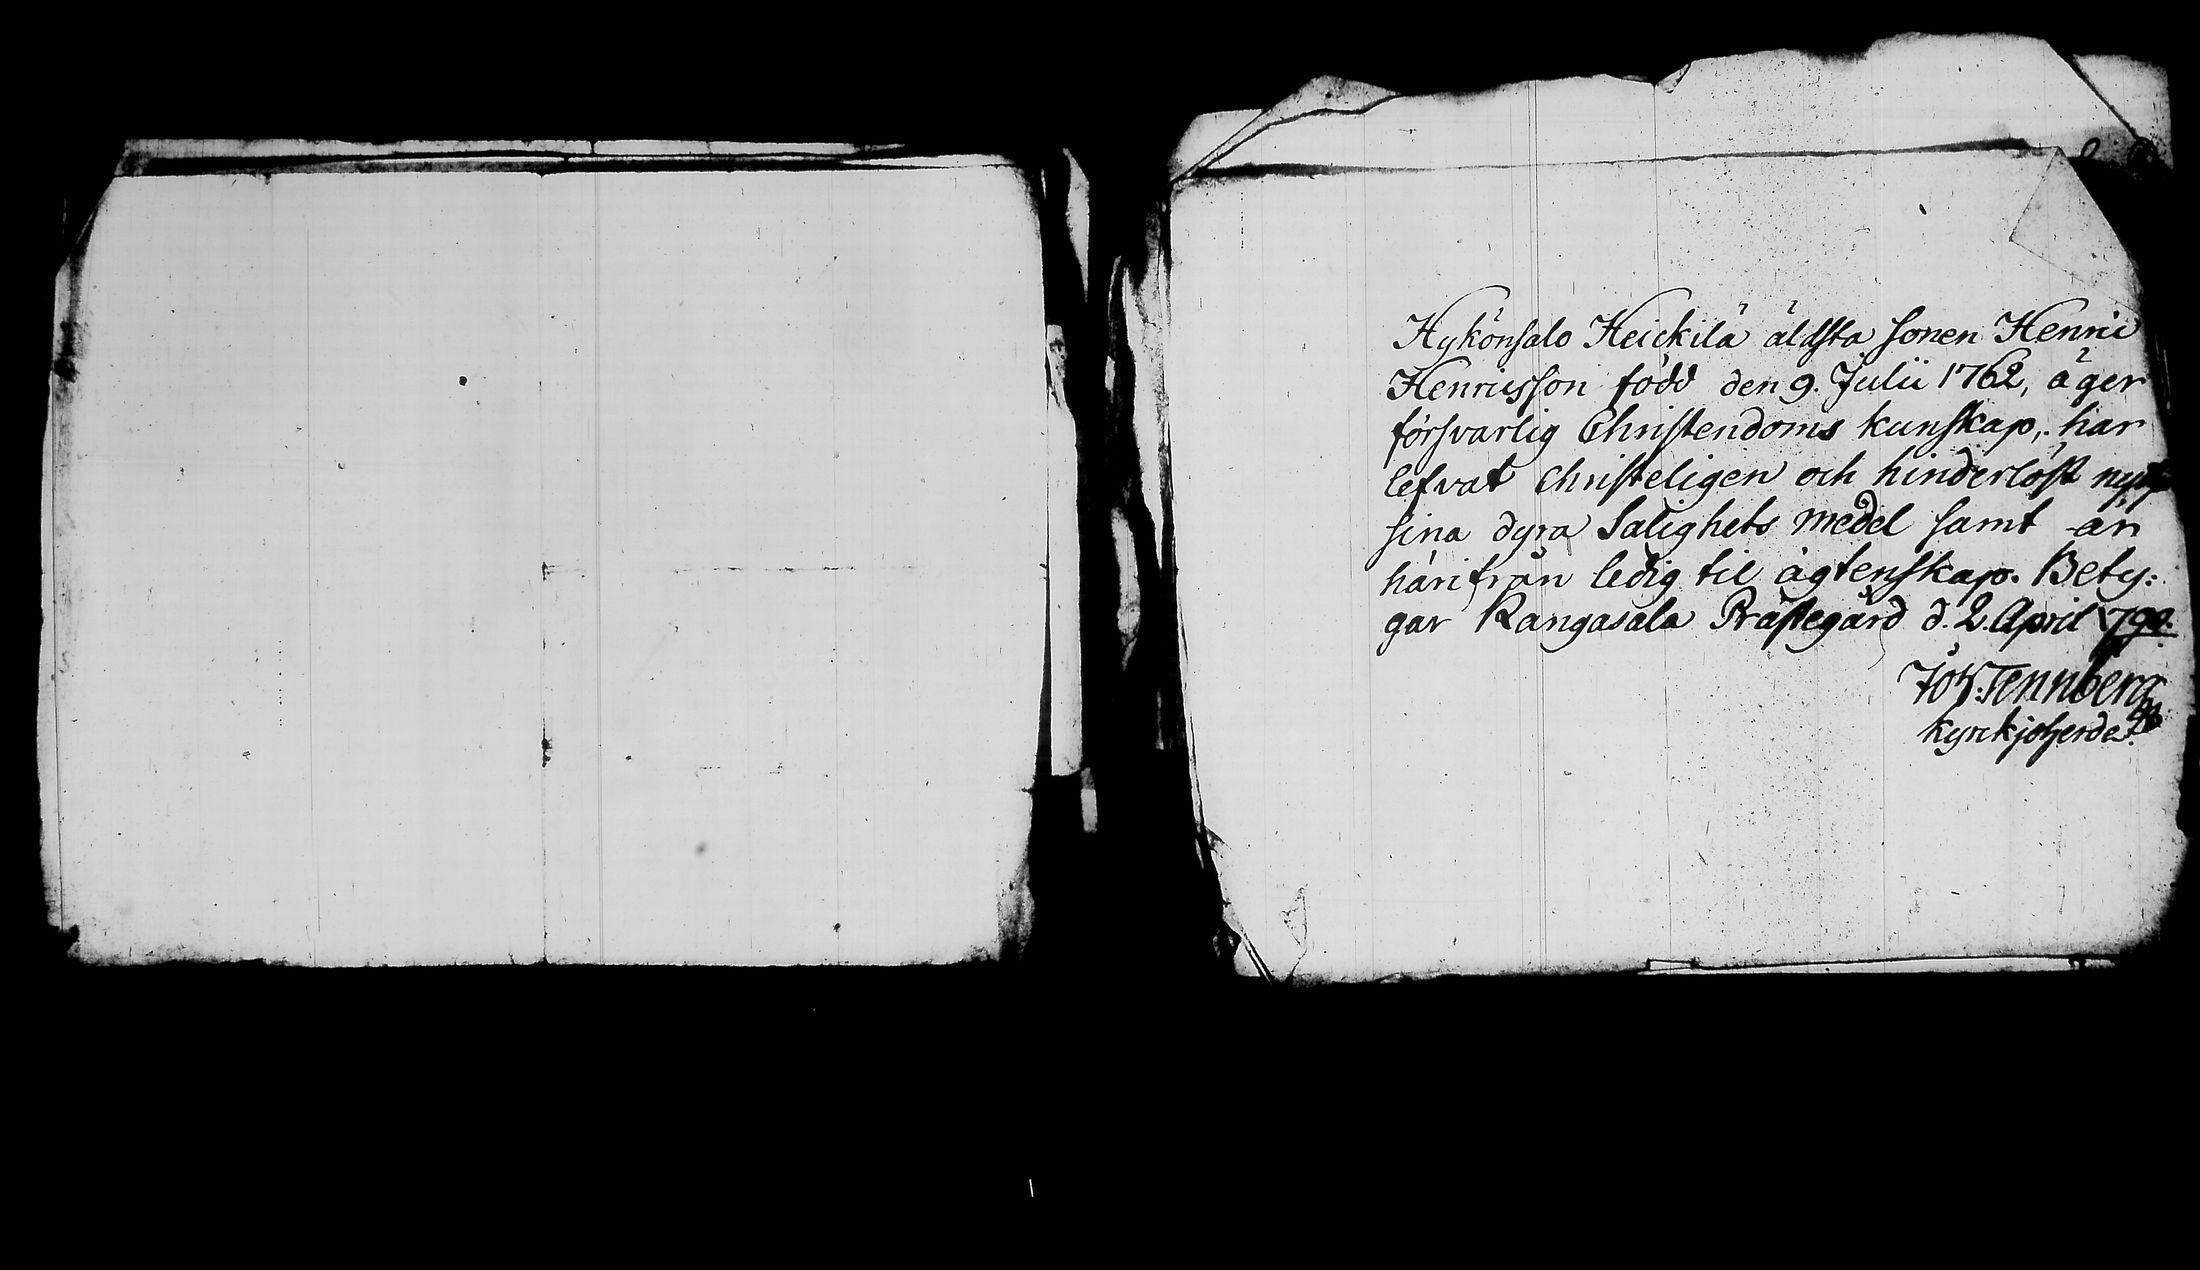 Hykönsalo Heickilä äldsta sonen Henric
Henricsson född den 9. Julii 1762, äger
försvarlig Christendoms kunskap, har
lefvat Christeligen och hinderlöst
sina dyra Salighets medel samt är
härifrån ledig til ägtenskap. Bety:
gar Kangasala Prästegård d. 2. April 1790.
Joh. Tennberg
kyrckjoherde.